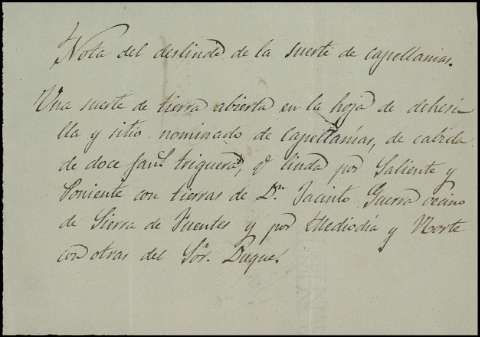 Nota del deslinde de la suerte de capellanias.
Una suerte de tierra abierta en la hoja de dehesi
lla y sitio nominado de Capellanias, de cabida
de doce fan.s trigueras, q.e linda por Saliente y
Poniente con tierras de D.n Jacinto Guerra vecino
de Sierra de Fuentes y por Mediodia y Norte
con otras del Sõr. Duque.